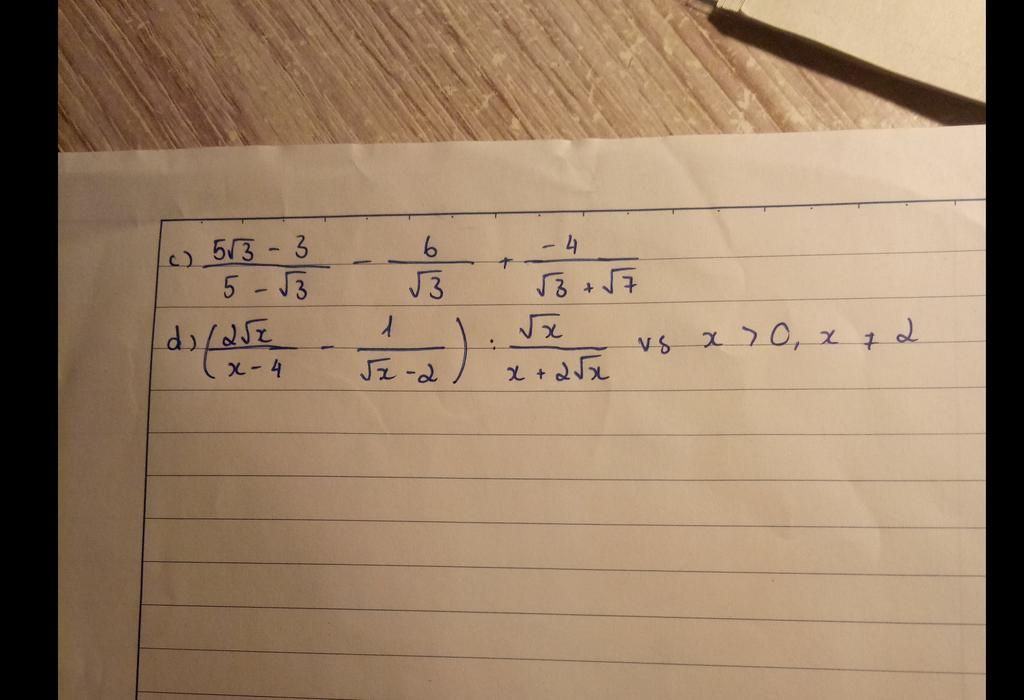 c) \frac{5\sqrt{3} - 3}{5 - \sqrt{3}} - \frac{6}{\sqrt{3}} + \frac{-4}{\sqrt{3} + \sqrt{7}}
d) \left( \frac{2\sqrt{x}}{x - 4} - \frac{1}{\sqrt{x} - 2} \right) : \frac{\sqrt{x}}{x + 2\sqrt{x}} vs x > 0, x ≠ 2